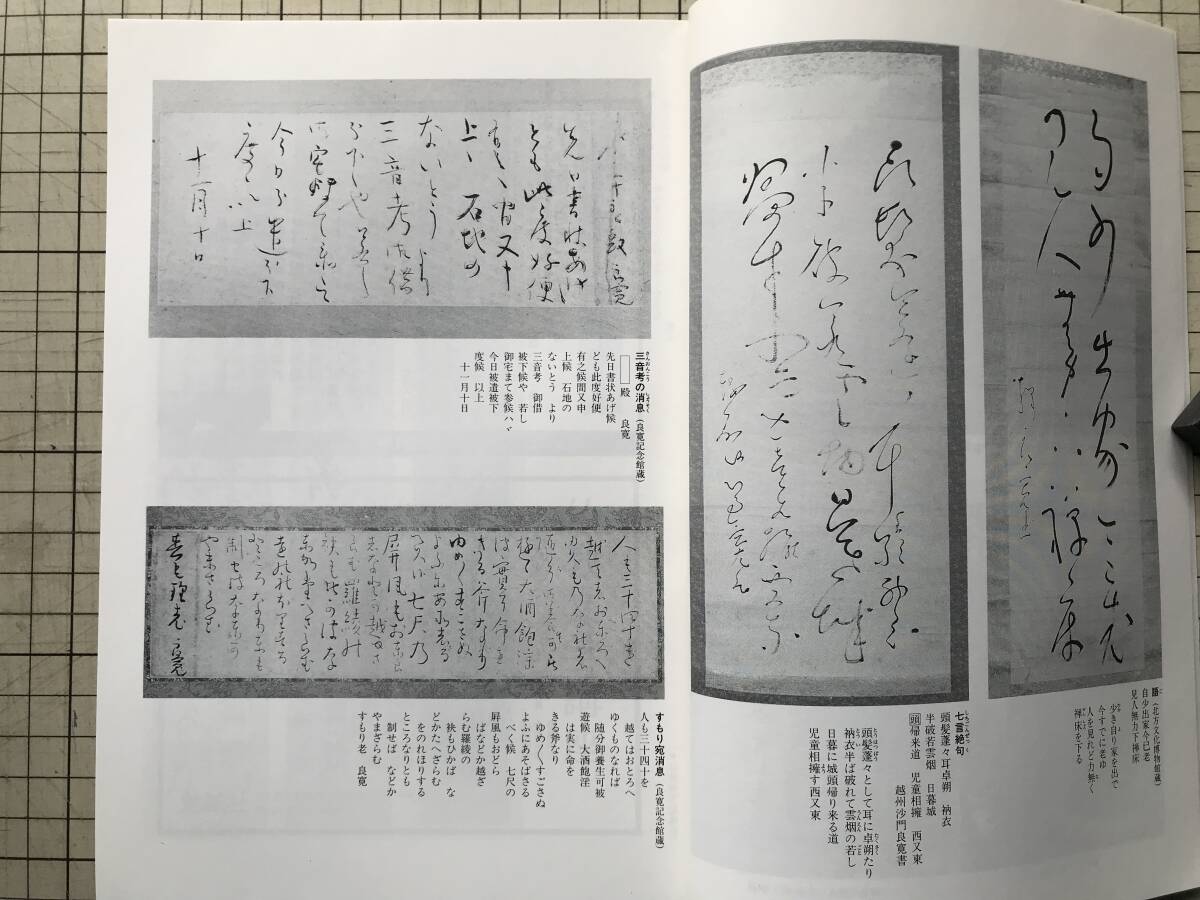 語（北方文化博物館蔵）
自少出家今已老
見人無力下禅床
少き自り家を出で
今すでに老ゆ
人を見れど力無く
禅床を下る
七言絶句
頭髪蓬々耳卓朔　衲衣
半破若雲烟　日暮城
頭帰来道　児童相擁　西又東
越州沙門良寛書
頭髪蓬々として耳に卓朔たり
衲衣半ば破れて雲烟の若し
日暮に城頭帰り来る道
児童相擁す西又東
三音考の消息（良寛記念館蔵）
殿　良寛
先日書状あげ候
ども此度好便
有之候間又申
上候　石地の
ないとう　より
三音考　御借
被下候や　若し
御宅まて参候ハヾ
今日被遣被下
度候　以上
十一月十日
すもり宛消息（良寛記念館蔵）
人も三十四十を
越てはおとろへ
ゆくものなれば
随分御養生可被
遊候　大酒飽淫
は実に命を
きる斧なり
ゆめ〱すごさぬ
よふにあそばさる
べく候　七尺の
屏風もおどら
ばなどか越ざ
らむ羅綾の
袂もひかば　な
どかたへざらむ
をのれほりする
ところなりとも
制せば　などか
やまざらむ
すもり老　良寛